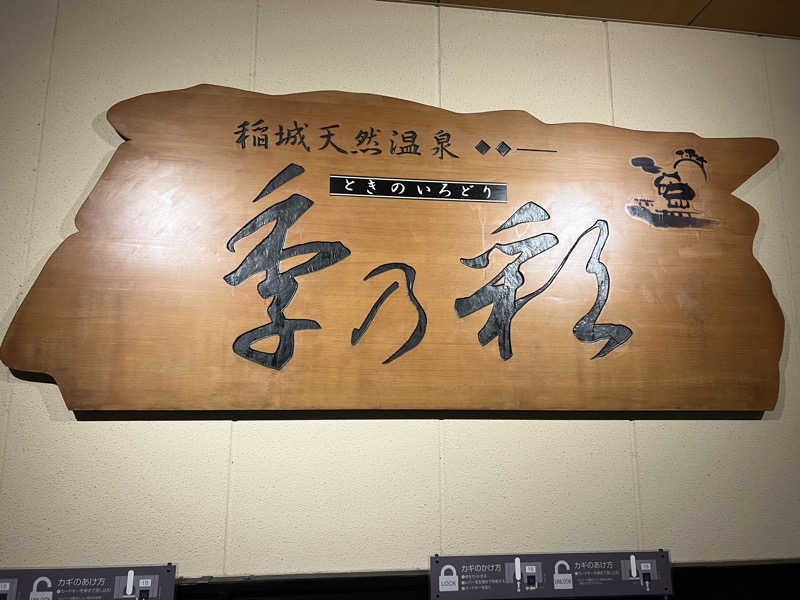 稲城天然温泉
ときのいろどり
季乃彩
カギのあけ方
18
カギのかけ方
LOCK
カギのあけ方
UNLOCK
18